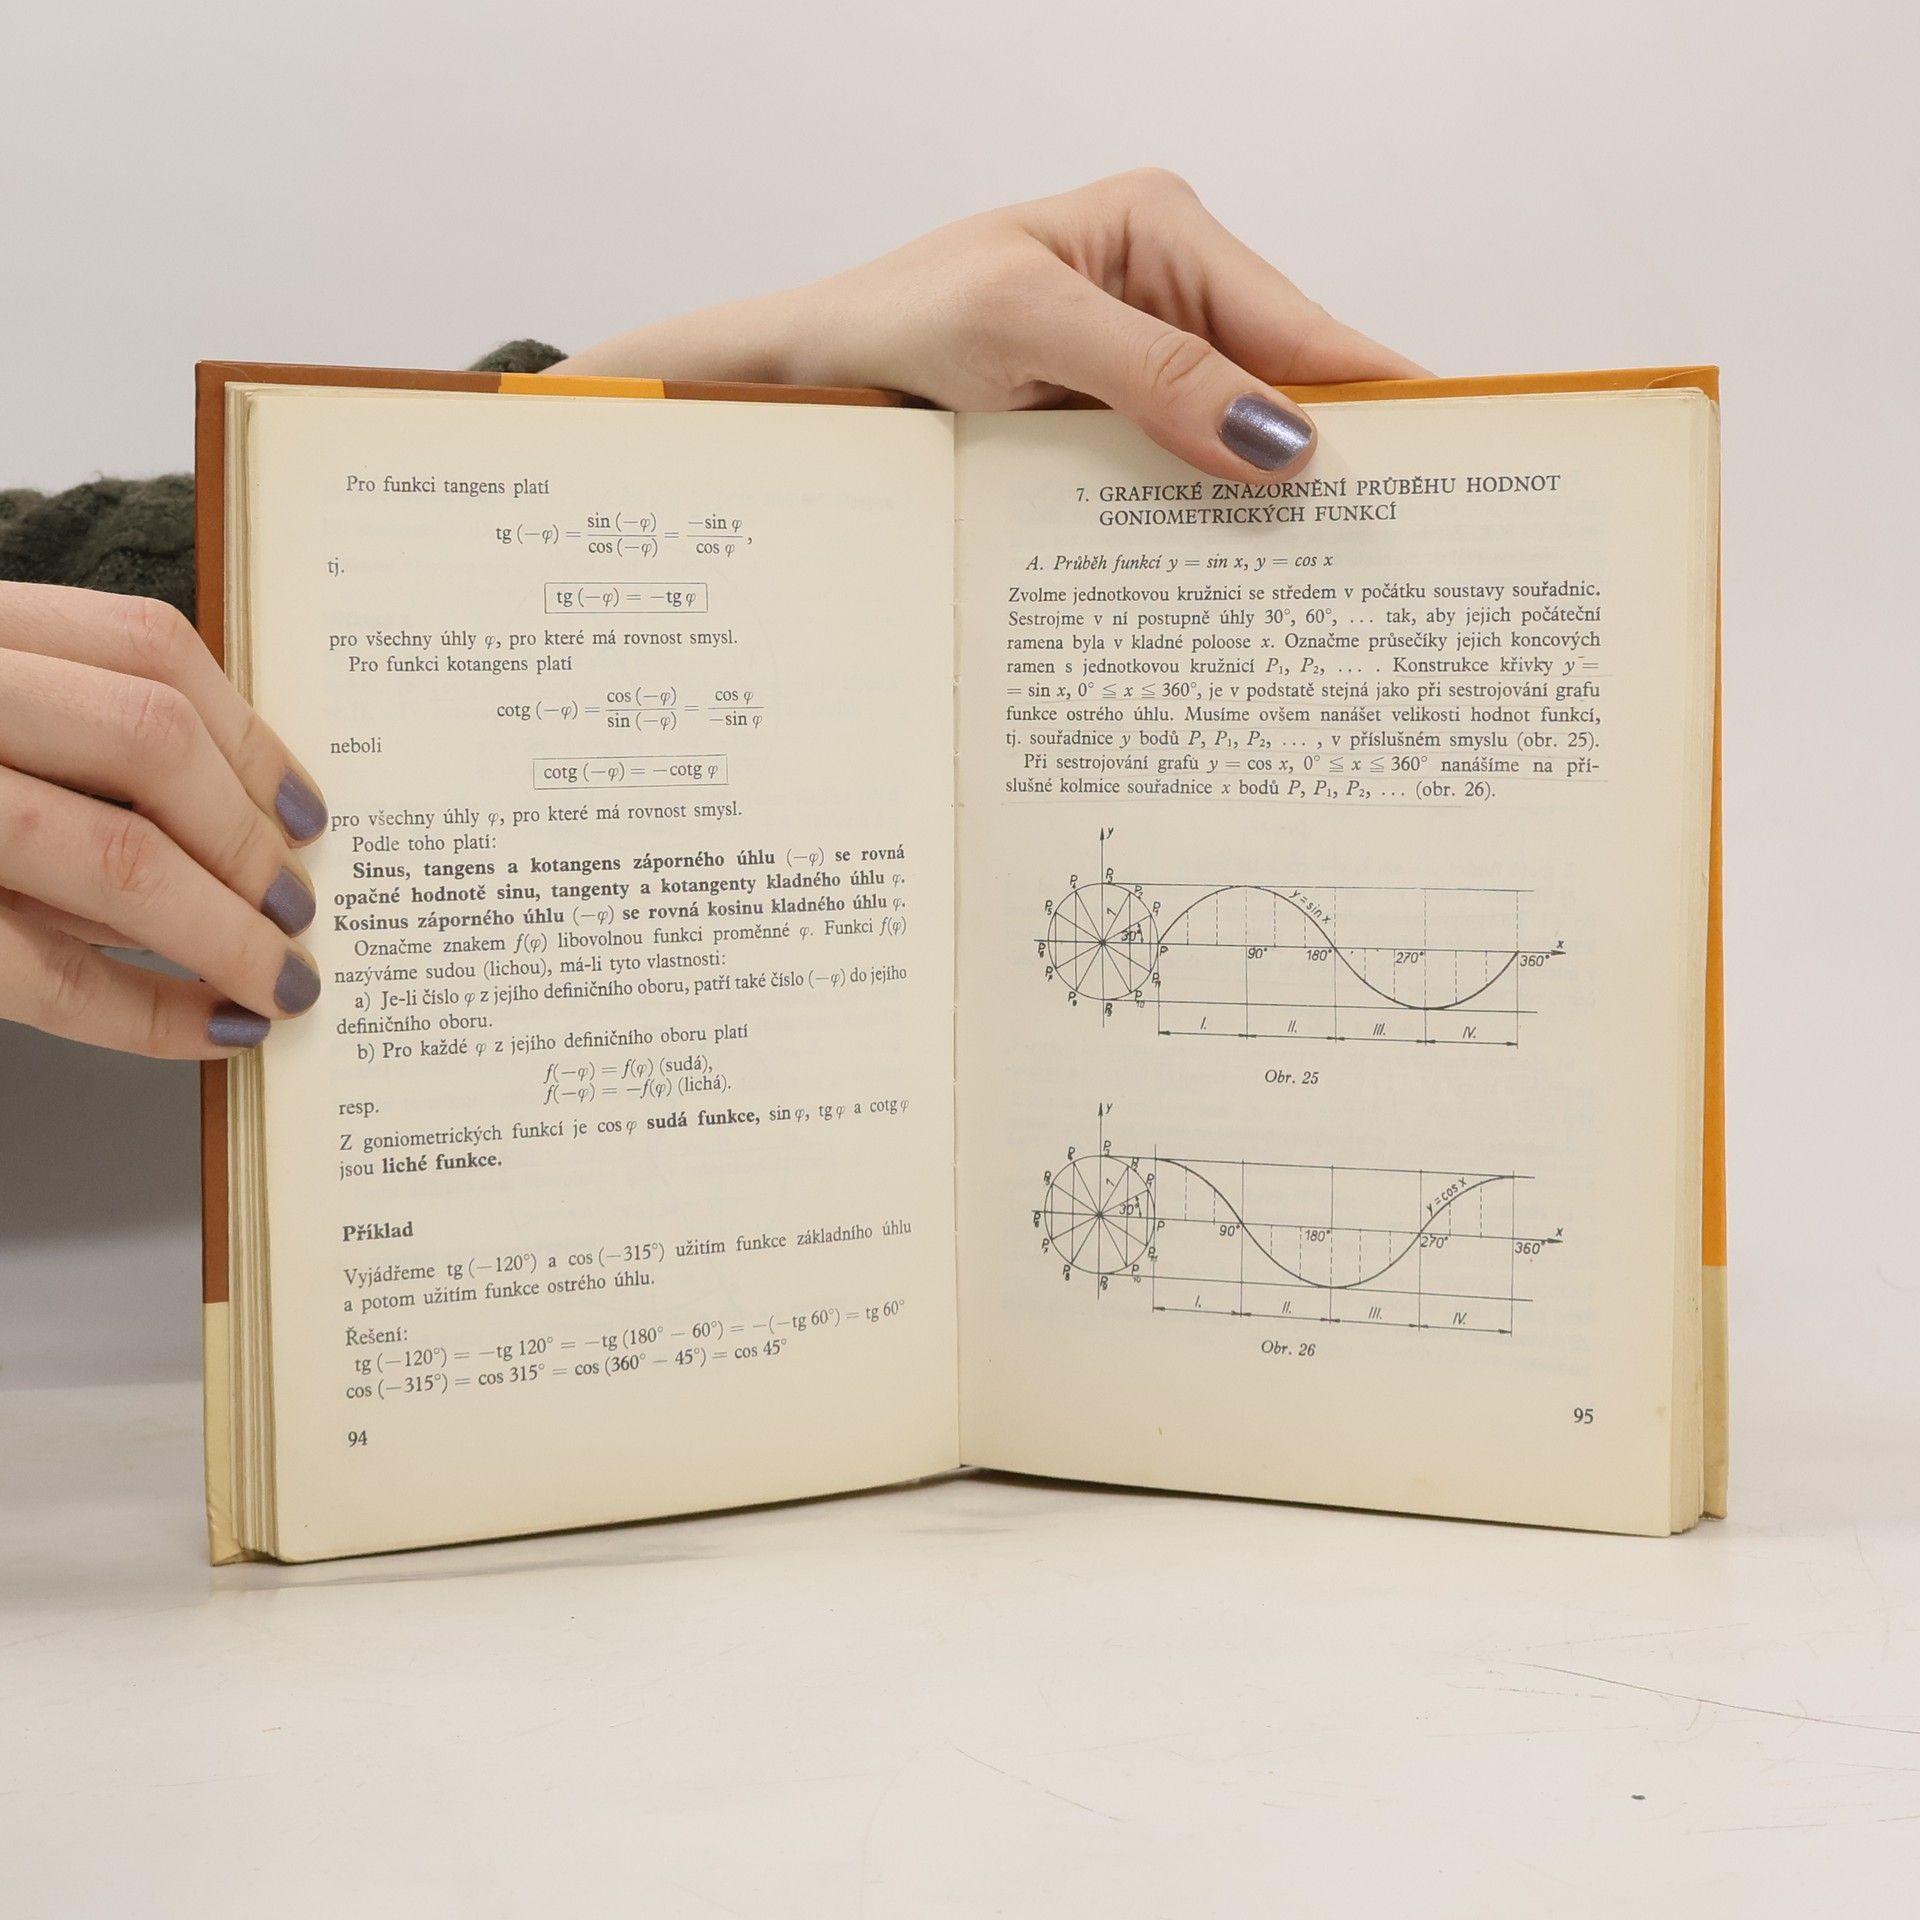 Pro funkci tangens platí
tg (−φ) = sin (−φ) / cos (−φ) = −sin φ / cos φ ,
tj.
tg (−φ) = −tg φ
pro všechny úhly φ, pro které má rovnost smysl.
Pro funkci kotangens platí
cotg (−φ) = cos (−φ) / sin (−φ) = cos φ / −sin φ
neboli
cotg (−φ) = −cotg φ
pro všechny úhly φ, pro které má rovnost smysl.
Podle toho platí:
Sinus, tangens a kotangens záporného úhlu (−φ) se rovná
opačné hodnotě sinu, tangenty a kotangenty kladného úhlu φ.
Kosinus záporného úhlu (−φ) se rovná kosinu kladného úhlu φ.
Označme znakem f(φ) libovolnou funkci proměnné φ. Funkci f(φ)
nazýváme sudou (lichou), má-li tyto vlastnosti:
a) Je-li číslo φ z jejího definičního oboru, patří také číslo (−φ) do jejího
definičního oboru.
b) Pro každé φ z jejího definičního oboru platí
f(−φ) = f(φ) (sudá),
resp.
f(−φ) = −f(φ) (lichá).
Z goniometrických funkcí je cos φ sudá funkce, sin φ, tg φ a cotg φ
jsou liché funkce.
Příklad
Vyjádřeme tg (−120°) a cos (−315°) užitím funkce základního úhlu
a potom užitím funkce ostrého úhlu.
Řešení:
tg (−120°) = −tg 120° = −tg (180° − 60°) = −(−tg 60°) = tg 60°
cos (−315°) = cos 315° = cos (360° − 45°) = cos 45°
94
7. GRAFICKÉ ZNÁZORNĚNÍ PRŮBĚHU HODNOT
GONIOMETRICKÝCH FUNKCÍ
A. Průběh funkcí y = sin x, y = cos x
Zvolme jednotkovou kružnici se středem v počátku soustavy souřadnic.
Sestrojme v ní postupně úhly 30°, 60°, ... tak, aby jejich počáteční
ramena byla v kladné poloose x. Označme průsečíky jejich koncových
ramen s jednotkovou kružnicí P₁, P₂, ... . Konstrukce křivky y =
= sin x, 0° ≦ x ≦ 360°, je v podstatě stejná jako při sestrojování grafu
funkce ostrého úhlu. Musíme ovšem nanášet velikosti hodnot funkcí,
tj. souřadnice y bodů P, P₁, P₂, ... , v příslušném smyslu (obr. 25).
Při sestrojování grafu y = cos x, 0° ≦ x ≦ 360° nanášíme na pří-
slušné kolmice souřadnice x bodů P, P₁, P₂, ... (obr. 26).
y
P₄ P₃ P₂
P₅ 1 P₁ y = sin x
P₆ 30° P 90° 180° 270° 360° x
P₇ P₁₁
P₈ P₉ P₁₀
I. II. III. IV.
Obr. 25
y
1 y = cos x
30° P 90° 180° 270° 360° x
P₈ P₉ P₁₀
I. II. III. IV.
Obr. 26
95